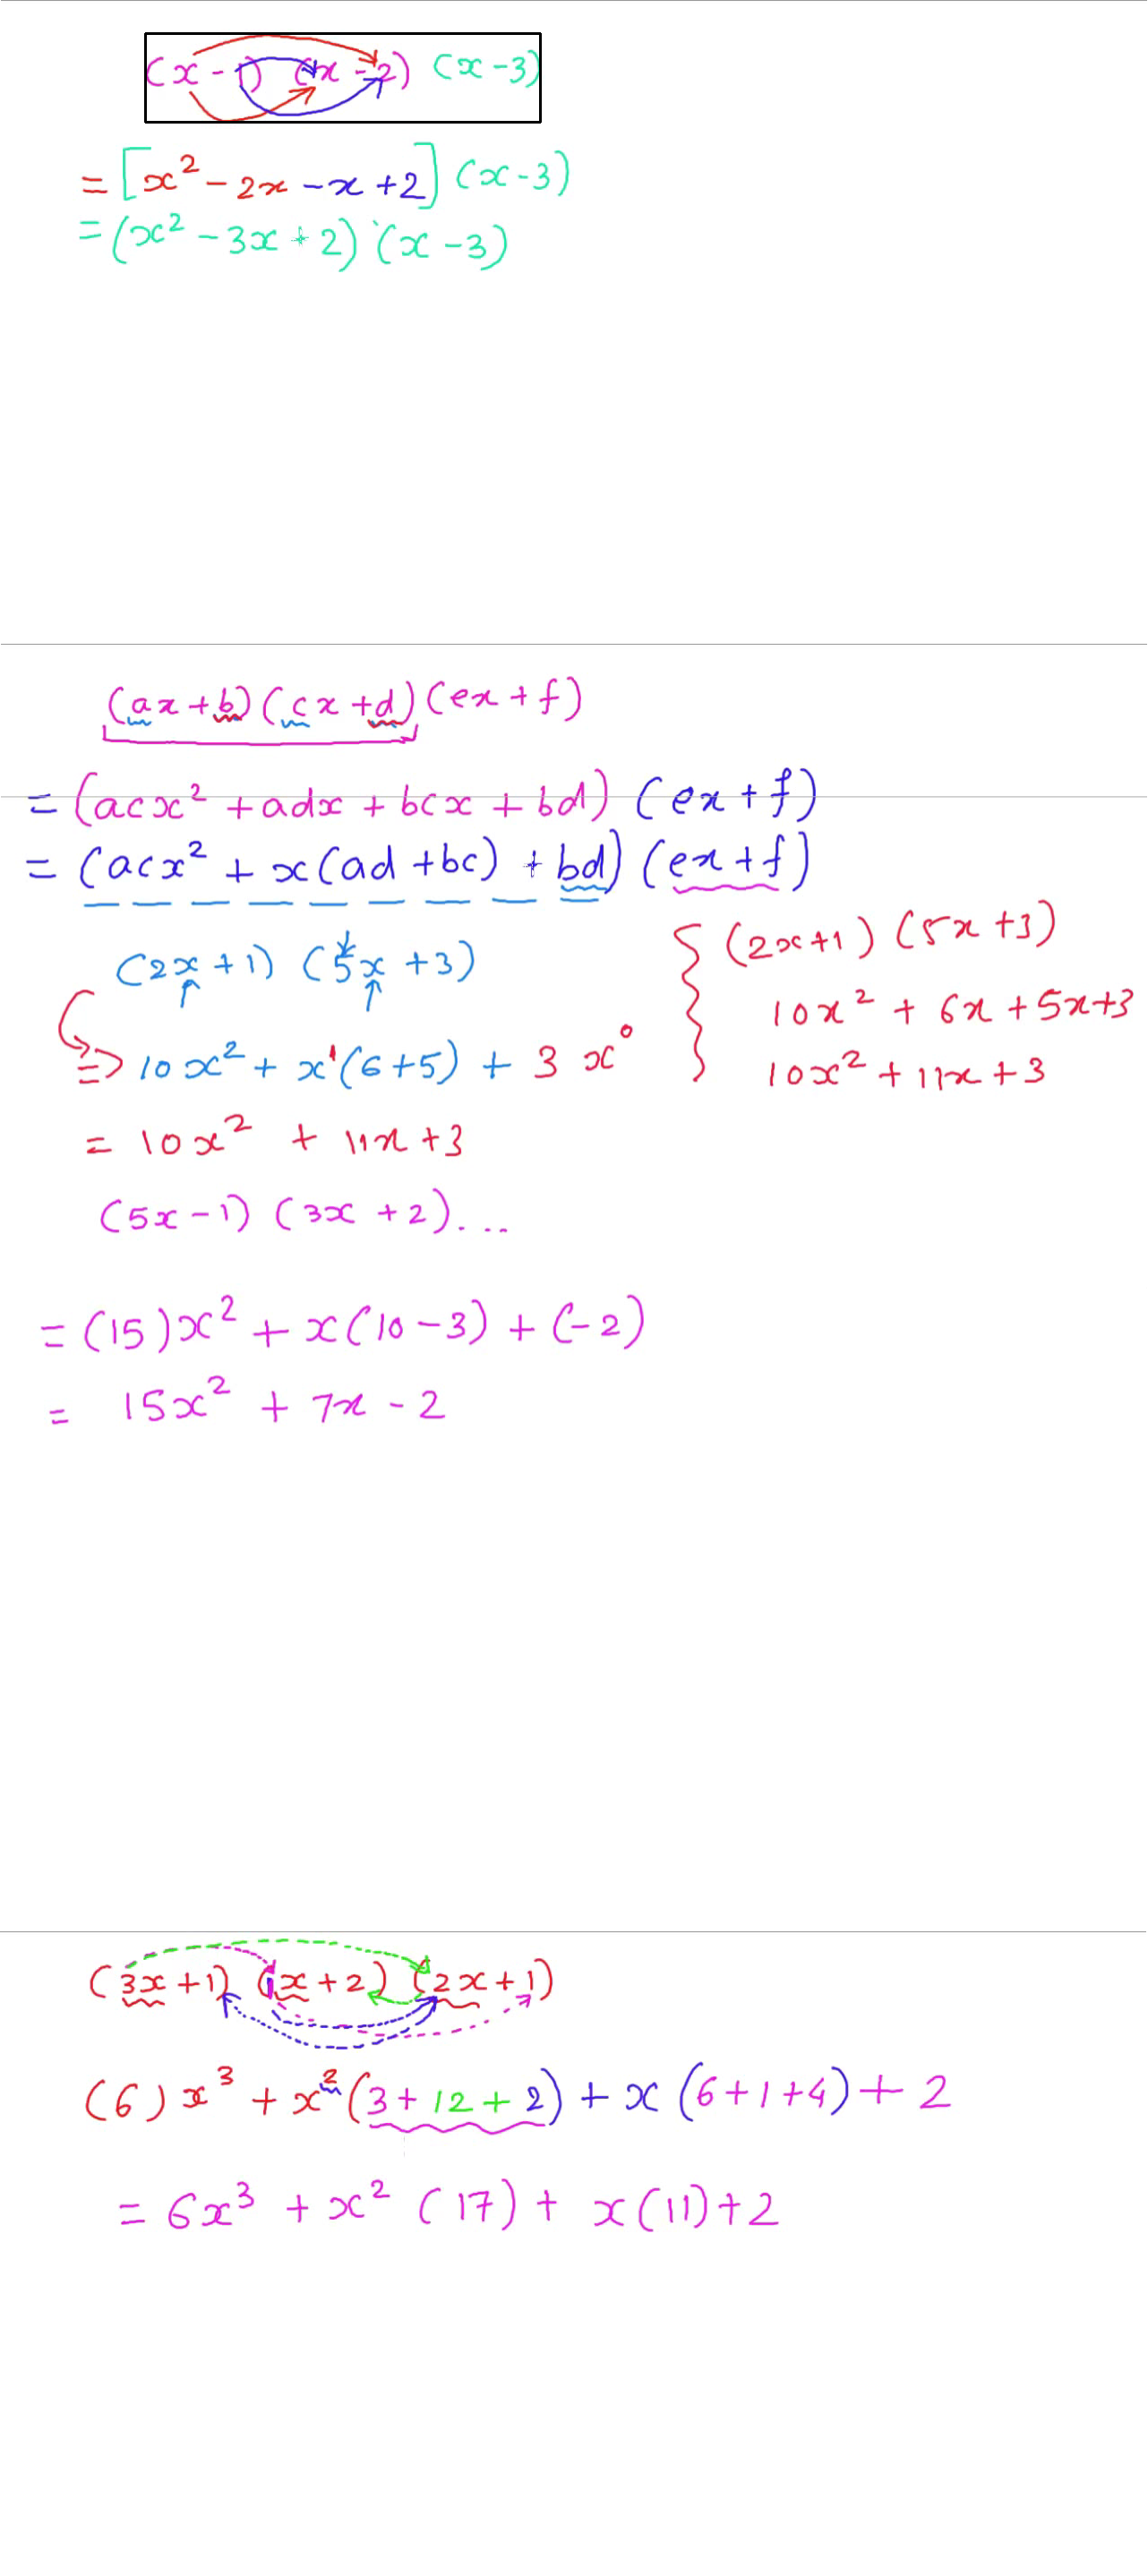 (x - 1) (x - 2) (x - 3)
= [x² - 2x - x + 2] (x - 3)
= (x² - 3x + 2) (x - 3)
(ax + b) (cx + d) (ex + f)
= (acx² + adx + bcx + bd) (ex + f)
= (acx² + x(ad + bc) + bd) (ex + f)
(2x + 1) (5x + 3)
=> 10x² + x¹(6 + 5) + 3x⁰
= 10x² + 11x + 3
{ (2x + 1) (5x + 3)
10x² + 6x + 5x + 3
10x² + 11x + 3
(5x - 1) (3x + 2) ...
= (15)x² + x(10 - 3) + (-2)
= 15x² + 7x - 2
(3x + 1) (1x + 2) (2x + 1)
(6)x³ + x²(3 + 12 + 2) + x(6 + 1 + 4) + 2
= 6x³ + x²(17) + x(11) + 2